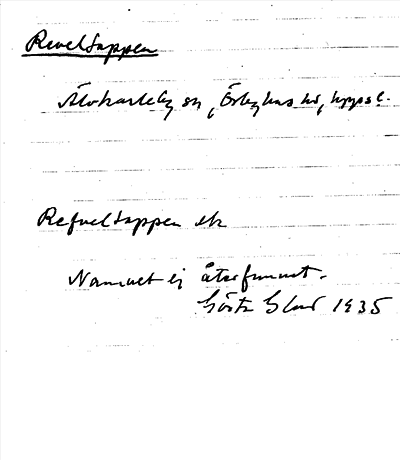 Reveltappen
Älvkarleby sn, Örbyhus hd, Upps l.
Refveltappen ek
Namnet ej återfunnet.
Gösta 1935